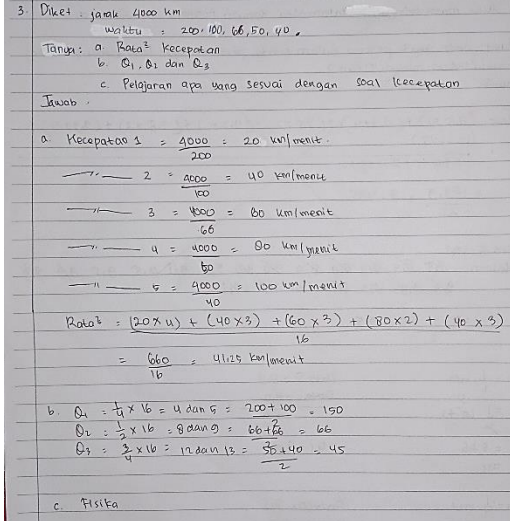 3. Diket : jarak 4000 km
waktu : 200, 100, 66, 50, 40.
Tanya : a. Rata² Kecepatan
b. Q₁, Q₂ dan Q₃
c. Pelajaran apa yang sesuai dengan soal kecepatan
Jawab.
a. Kecepatan 1 = 4000/200 = 20 km/menit.
—"— 2 = 4000/100 = 40 km/menit
—"— 3 = 4000/66 = 60 km/menit
—"— 4 = 4000/50 = 80 km/menit
—"— 5 = 4000/40 = 100 km/menit
Rata² = (20 x 4) + (40 x 3) + (60 x 3) + (80 x 2) + (40 x 3) / 16
= 660/16 = 41,25 km/menit
b. Q₁ = 1/4 x 16 = 4 dan 5 = 200 + 100 / 2 = 150
Q₂ = 1/2 x 16 = 8 dan 9 = 66 + 66 / 2 = 66
Q₃ = 3/4 x 16 = 12 dan 13 = 50 + 40 / 2 = 45
c. Fisika